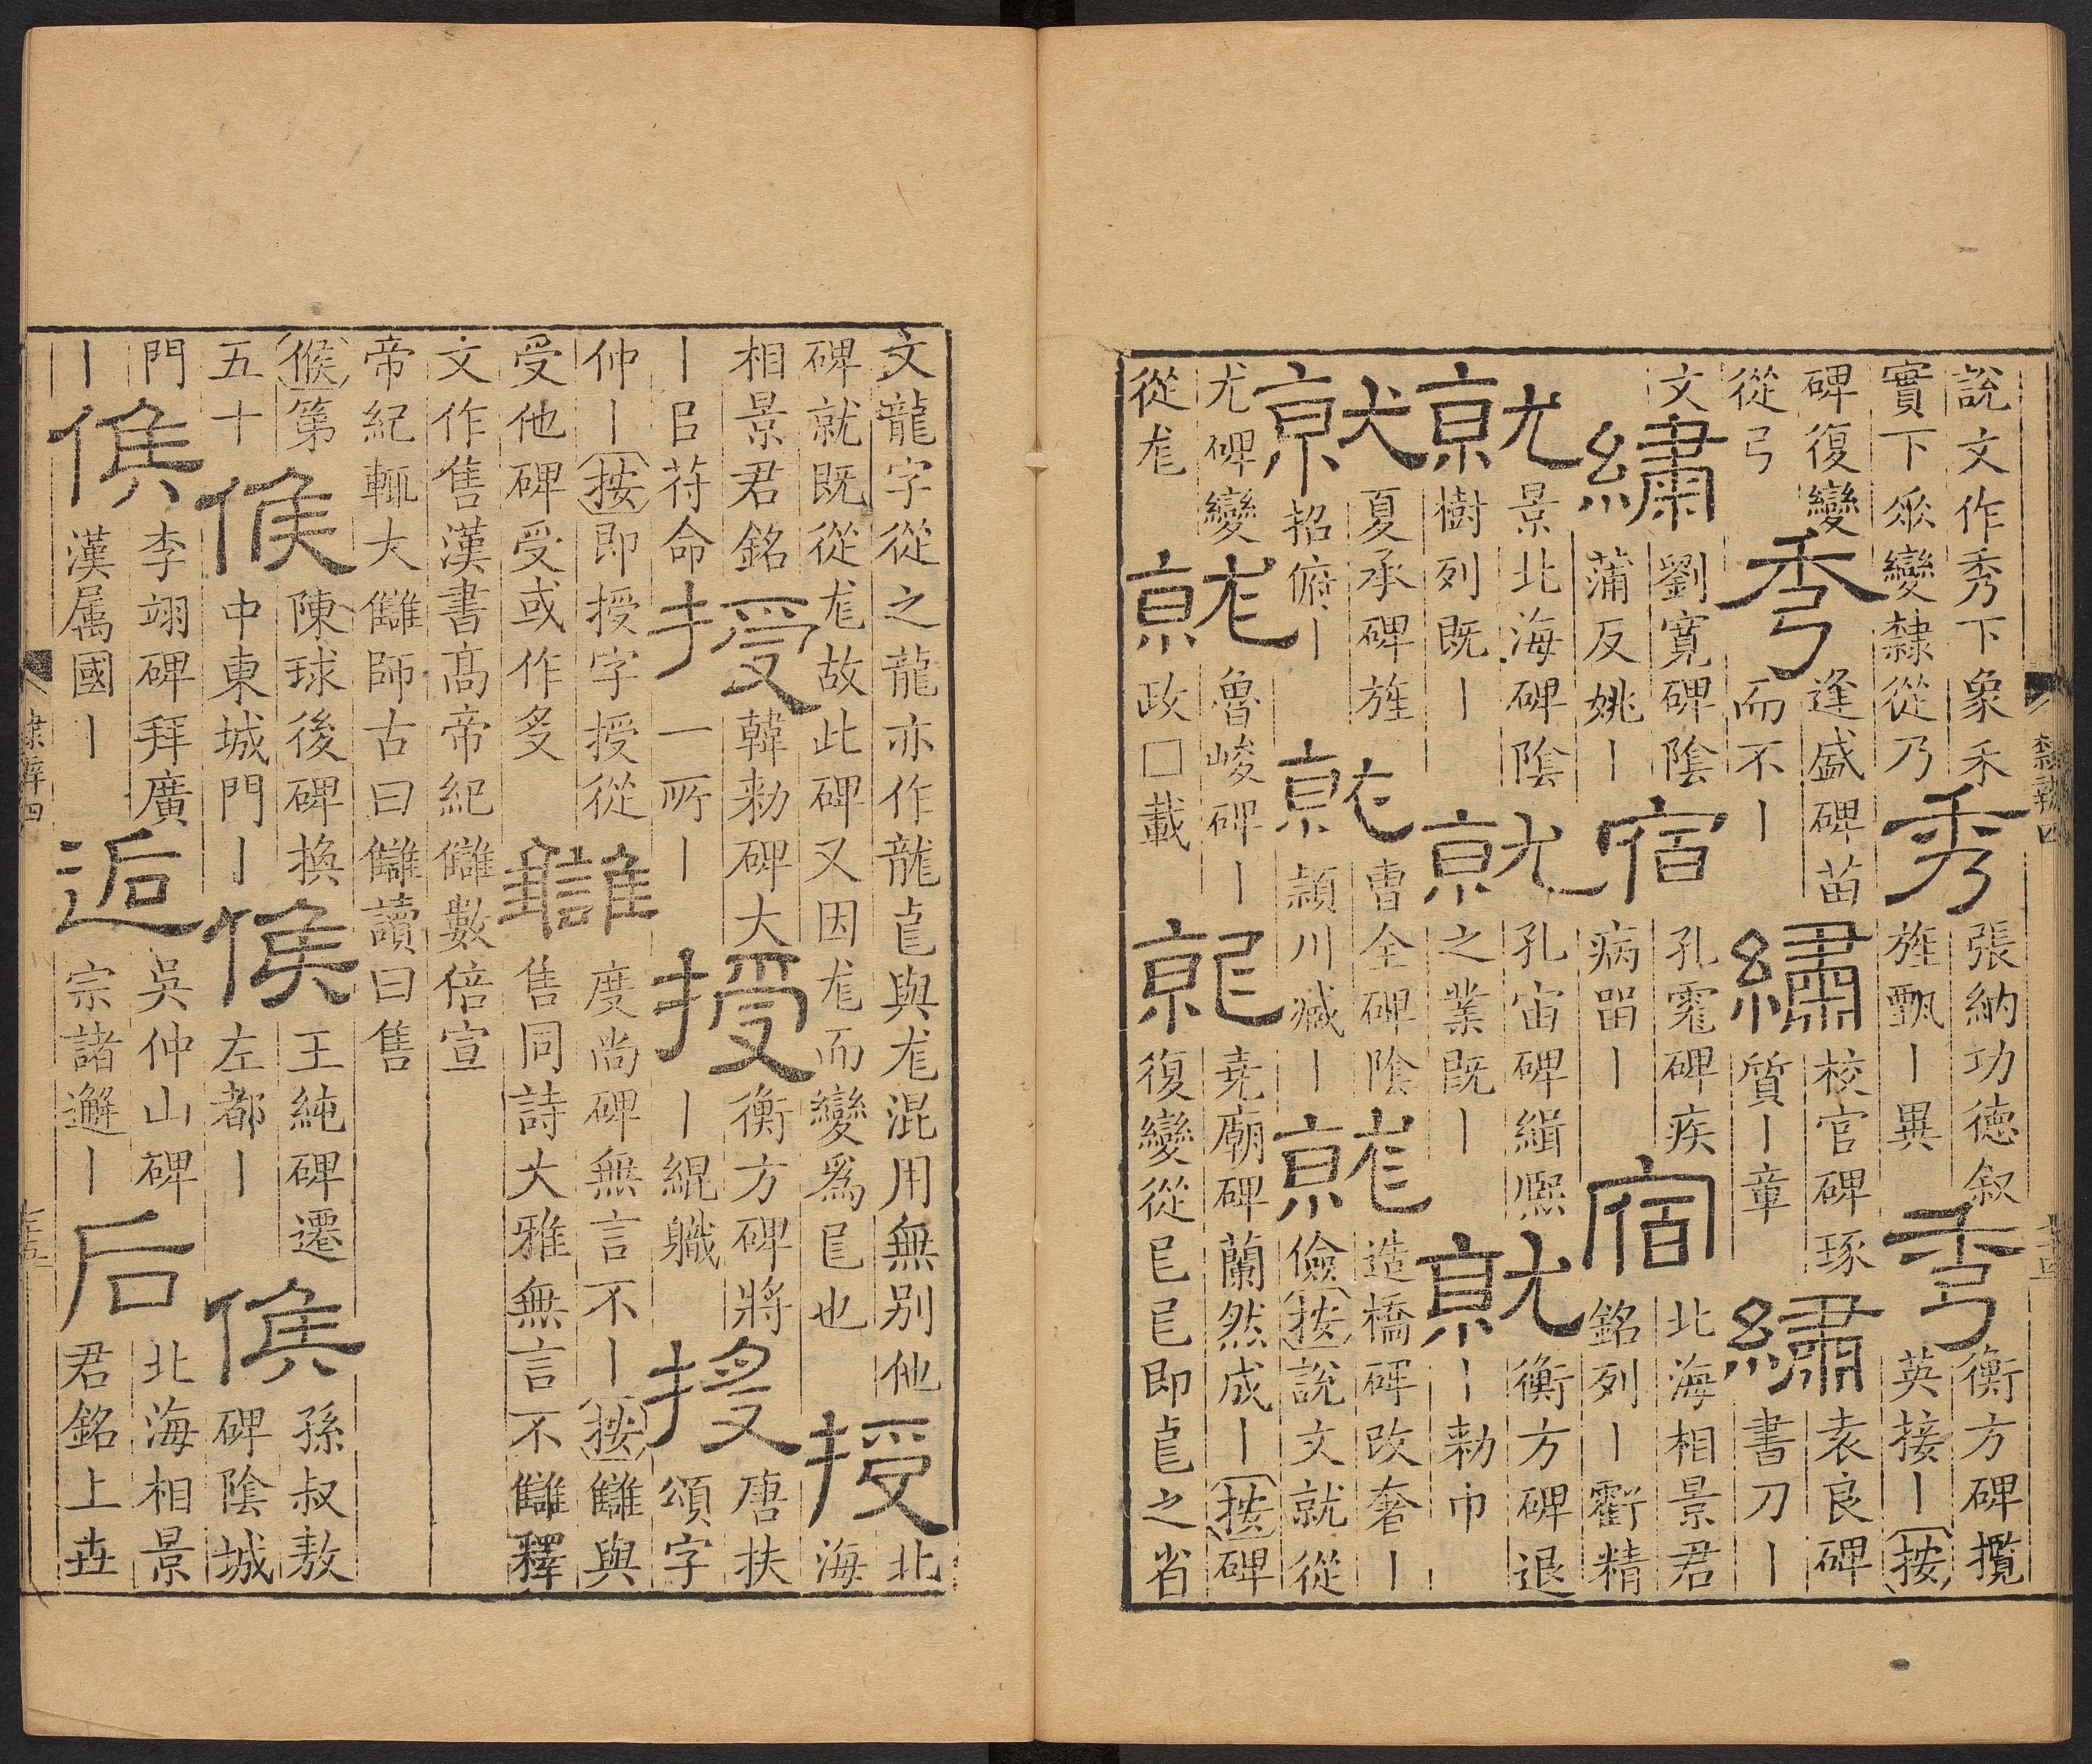 說文作秀下象禾實下𠂹變隸從乃 秀 張納功德叙旌甄｜異 秀 衡方碑攬英接｜按
碑復變從弓 秀 逢盛碑苗而不｜ 繡 校官碑琢質｜章 繡 袁良碑書刀｜
文 繡 劉寬碑陰蒲反姚｜ 宿 孔霓碑疾病留｜ 宿 北海相景君銘列｜虧精
就 景北海碑陰樹列既｜ 就 孔宙碑緝熙之業既｜ 就 衡方碑退｜勑巾
就 夏承碑旌招俯｜ 就 曹全碑陰穎川臧｜ 就 造橋碑改奢｜儉按說文就從
尤碑變從尨 就 魯峻碑｜政□載 就 堯廟碑蘭然成｜按碑復變從㠯㠯即㡯之省
隸辨四
文龍字從之龍亦作龍㡯與尨混用無别他碑就既從尨故此碑又因尨而變爲㠯也 授 北海
相景君銘｜㠯苻命 授 韓勑碑大一所｜ 授 衡方碑將｜緄職 授 唐扶頌字
仲｜按即授字授從受他碑受或作 讎 度尚碑無言不｜按讎與售同詩大雅無言不讎釋
文作售漢書髙帝紀讎數倍宣帝紀輒大讎師古曰讎讀曰售
候第五十 候 陳球後碑換中東城門｜ 候 王純碑遷左都｜ 候 孫叔敖碑陰城
門｜ 候 李翊碑拜廣漢属國｜ 逅 吳仲山碑宗諸邂｜ 后 北海相景君銘上𠀍
隸辨四